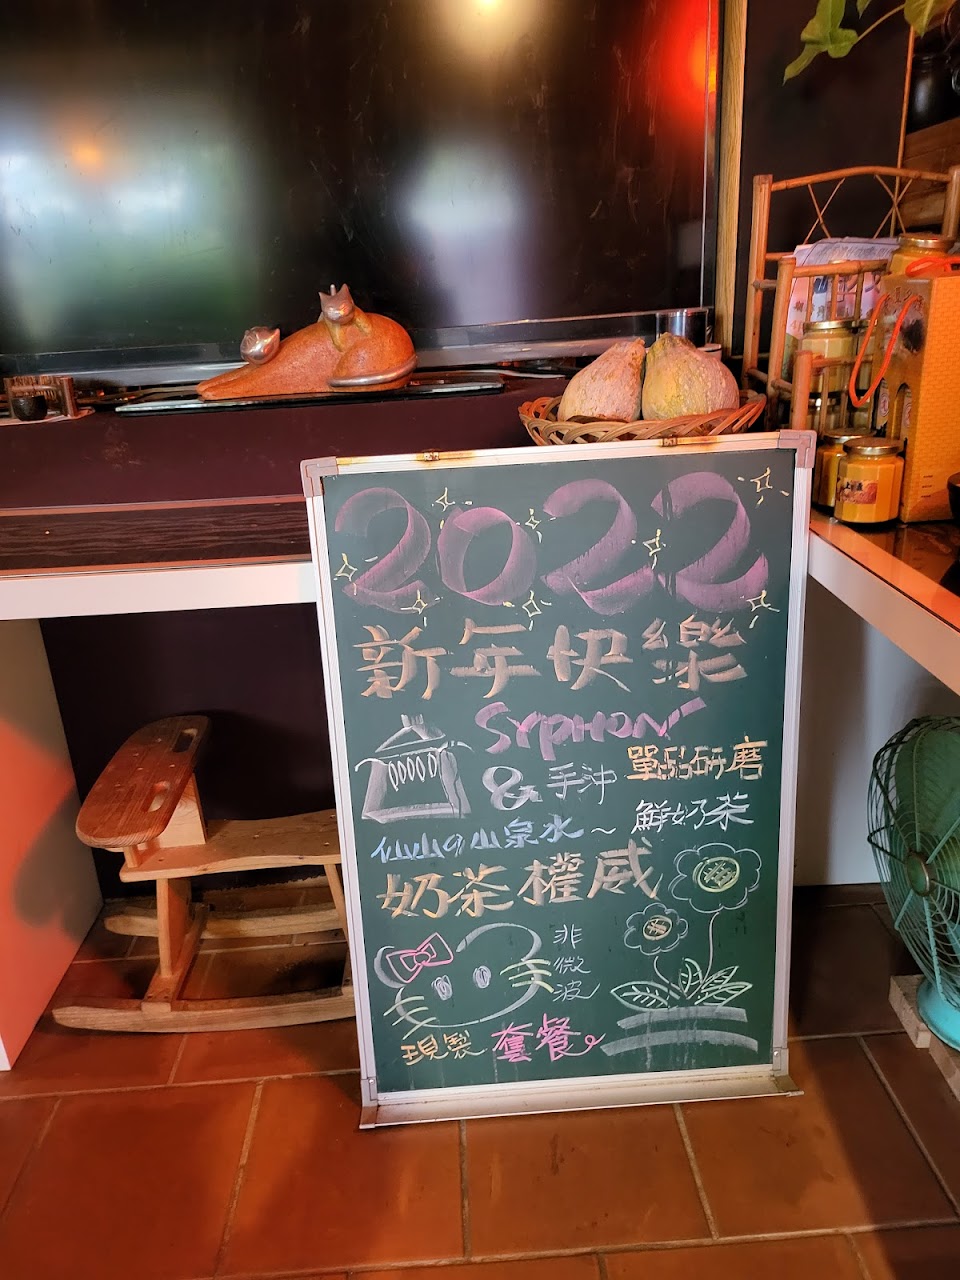 2022
新年快樂
SYPHON
& 手沖 單品研磨
仙山の山泉水~ 鮮奶茶
奶茶權威
非
微
波
現製 套餐